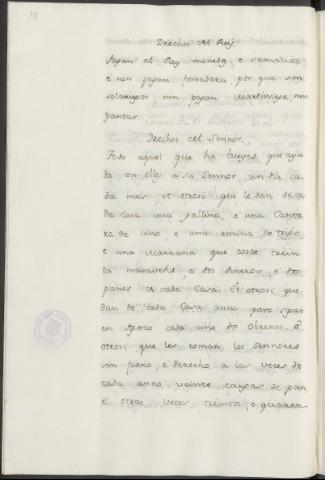 Drechos del Rey.
Papan al Rey moneda, e servicios
e non papan fonsadera, por que son
solariegos nin papan martiniega, nin
yantar.
Drechos del Sennor.
Todo aquel que ha bueyes que ayu
da con ellos a su Sennor, un dia ca
da mes et otrosi que le dan de ca
da casa una gallina, e una Canta
ra de vino, e una emina de trigo
e una marrana que coste trein
ta maravedis, e dos dineros, e dos
panes de cada Casa. Et otrosi que
dan de cada Casa anno para
en Aposto cada uno dos obreros. E
otrosi que les toman los Sennores
sin fuero, e derecho a las veces de
cada anno, veinte cargas de pan
e otras veces treinta, o quaren-